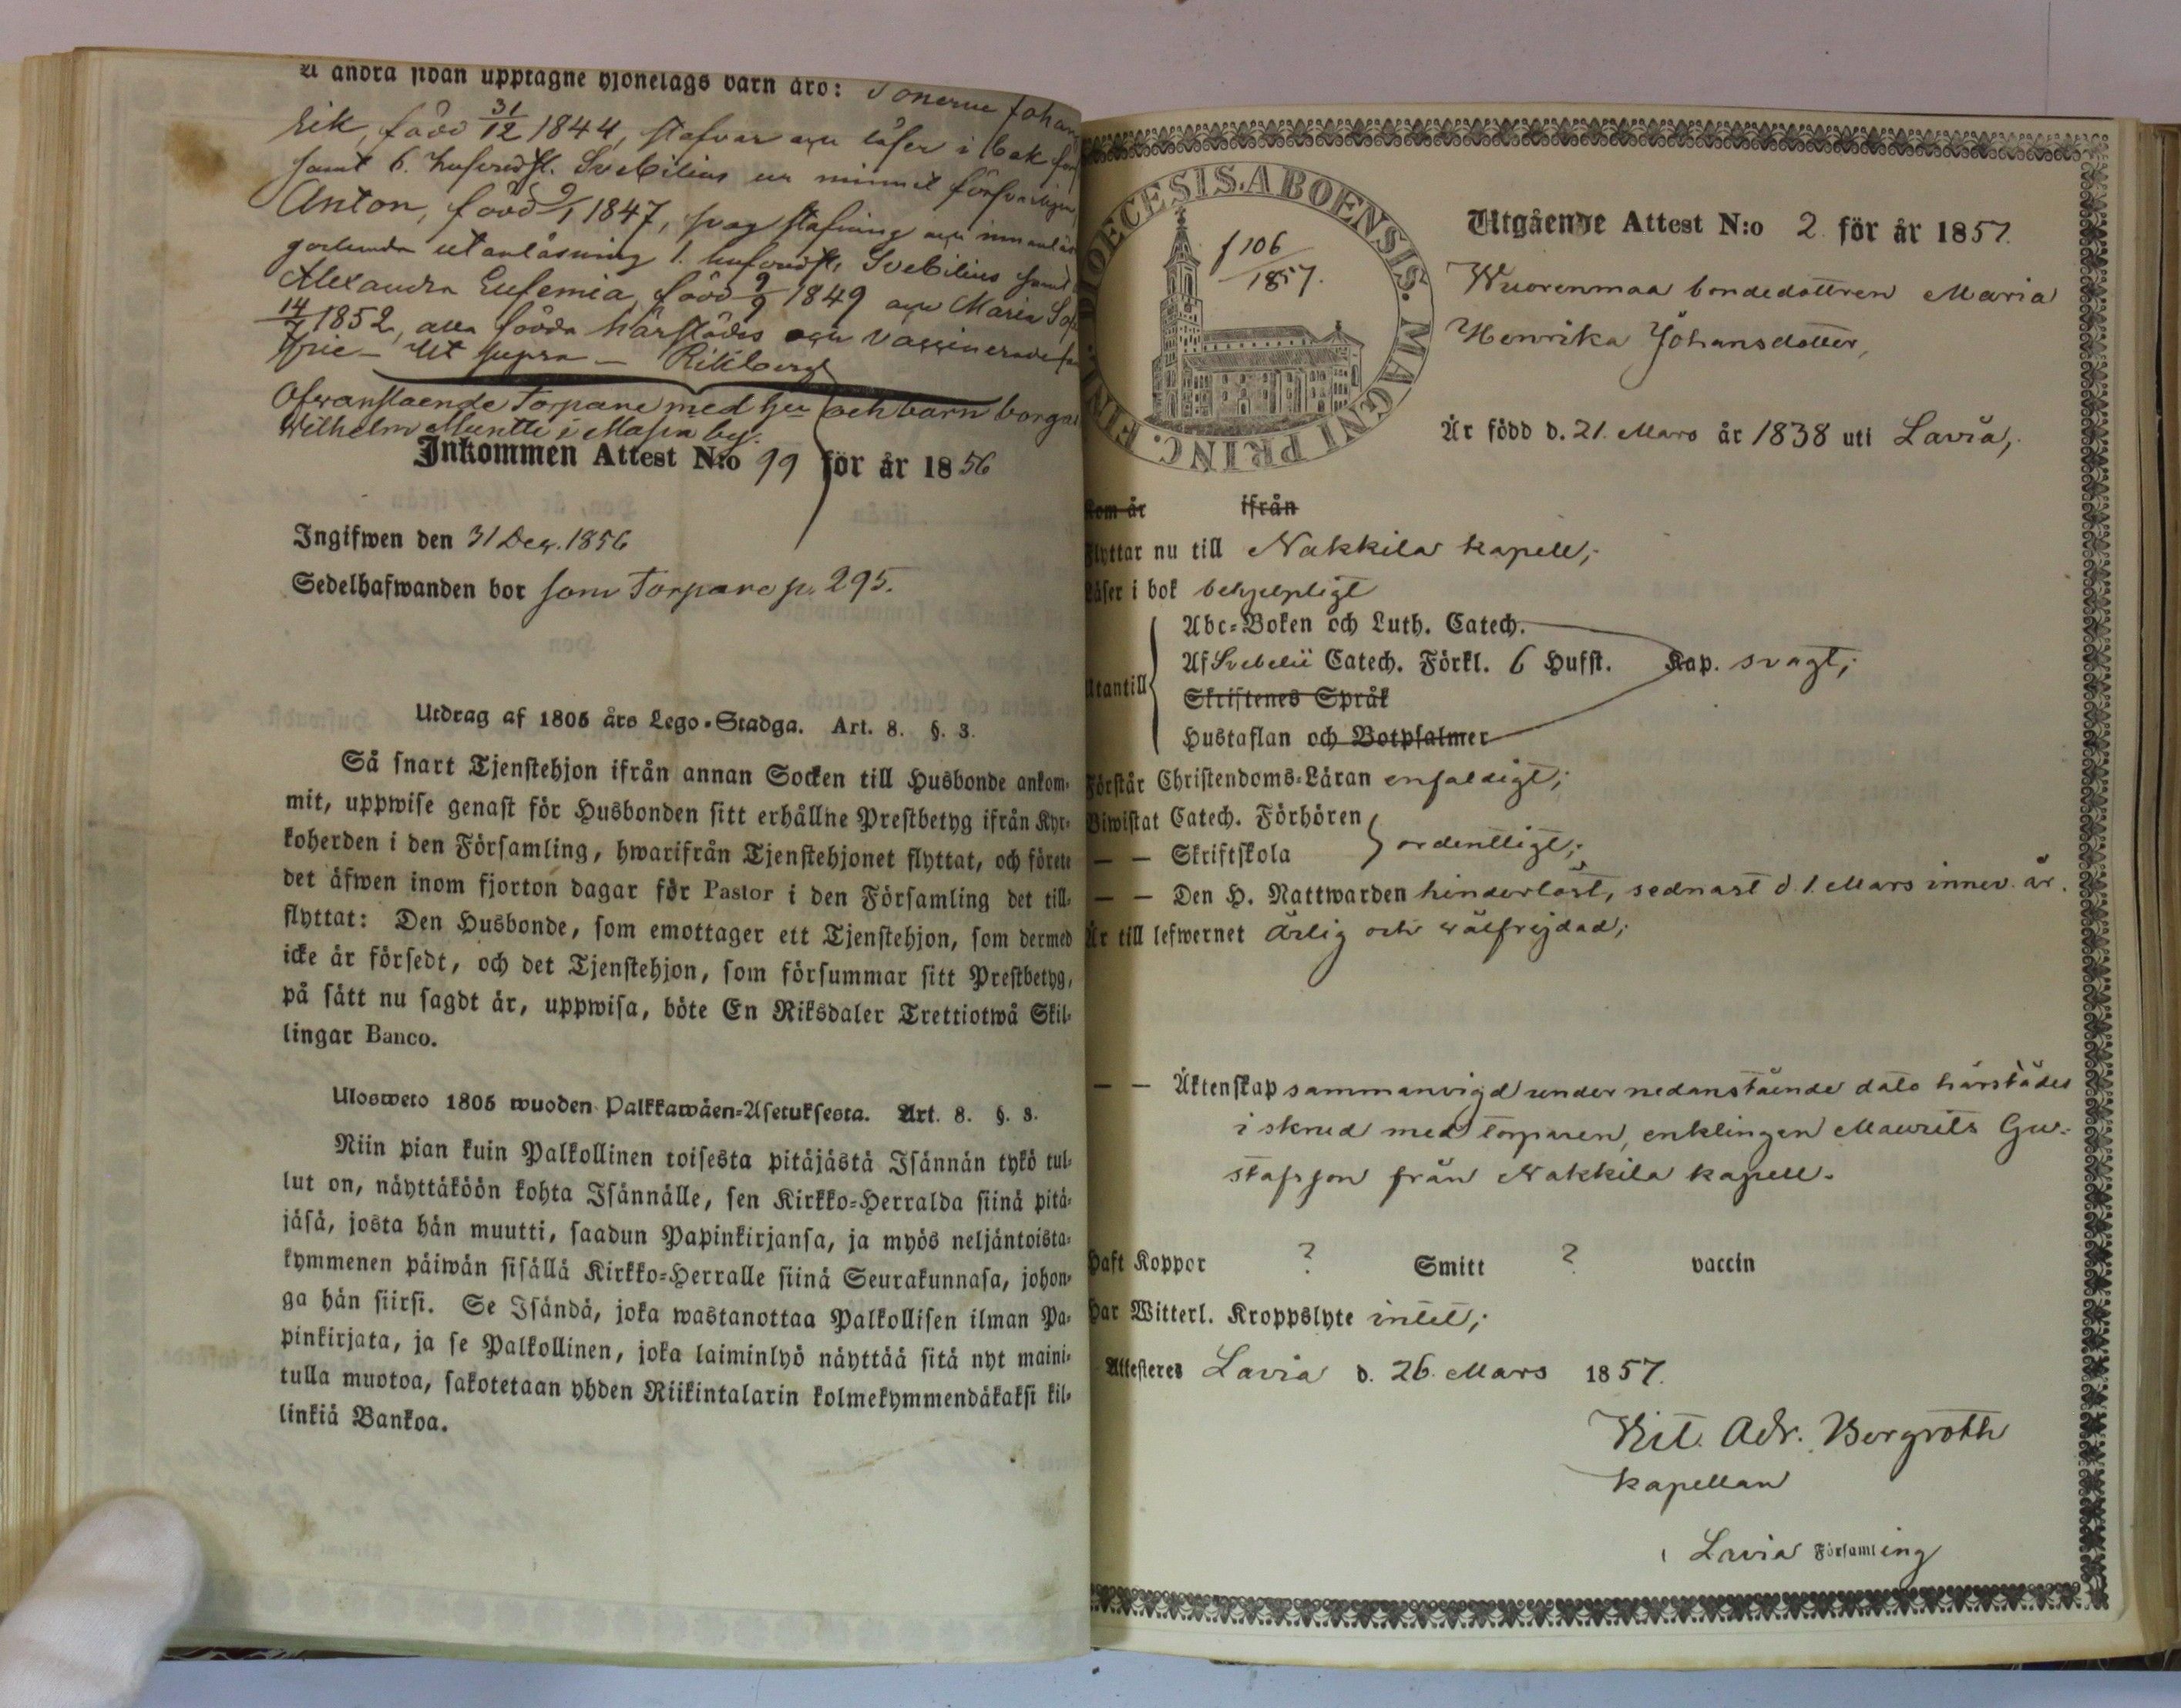 å andra sidan upptagne hjonelags barn äro: Sönerne Johan
Erik, född 31/12 1844, stafvar och läser i bok
samt 6. hufvudst. Svebilius ur minnet försvarligen
Anton, född 9/1 1847, svag stafning och innanläs
utanläsning 1. hufvudst. Svebilius samt
Alexandra Eufemia, född 9/9 1849 och Maria So
14/7 1852, alla födda härstädes och vaccinerade
Ut supra — Rikberg
Ofvanstående Torpare med hu och barn
Wilhelm i Masia by.
Inkommen Attest N:o 99 för år 1856
Ingifwen den 31 Dec. 1856
Sedelhafwanden bor som Torpare p. 295.
Utdrag af 1805 års Lego-Stadga. Art. 8. §. 3.
Så snart Tjenstehjon ifrån annan Socken till Husbonde ankom-
mit, uppwise genast för Husbonden sitt erhållne Prestbetyg ifrån Kyr-
koherden i den Församling, hwarifrån Tjenstehjonet flyttat, och förete
det äfwen inom fjorton dagar för Pastor i den Församling det till-
flyttat: Den Husbonde, som emottager ett Tjenstehjon, som dermed
icke är försedt, och det Tjenstehjon, som försummar sitt Prestbetyg,
på sätt nu sagdt är, uppwisa, böte En Riksdaler Trettiotwå Skil-
lingar Banco.
Ulosweto 1805 wuoden Palkkawäen-Asetuksesta. Art. 8. §. 3.
Niin pian kuin Palkollinen toisesta pitäjästä Isännän tykö tul-
lut on, näyttäköön kohta Isännälle, sen Kirkko-Herralda siinä pitä-
jäsä, josta hän muutti, saadun Papinkirjansa, ja myös neljäntoista-
kymmenen päiwän sisällä Kirkko-Herralle siinä Seurakunnasa, johon-
ga hän siirsi. Se Isändä, joka wastanottaa Palkollisen ilman Pa-
pinkirjata, ja se Palkollinen, joka laiminlyö näyttää sitä nyt maini-
tulla muotoa, sakotetaan yhden Riikintalarin kolmekymmendäkaksi kil-
linkiä Bankoa.
DIOECESIS. ABOENSIS. MAGNI PRINC. FINL.
f 106
1857.
Utgående Attest N:o 2 för år 1857.
Wuorenmaa bondedottren Maria
Henrika Johansdotter,
Är född d. 21. Mars år 1838 uti Lavia,
Kom år ifrån
Flyttar nu till Nakkila kapell;
Läser i bok behjelpligt
Utantill
Abc-Boken och Luth. Catech.
Af Svebelii Catech. Förkl. 6 Hufst. Kap. svagt;
Skriftenes Språk
Hustaflan och Botpsalmer
Förstår Christendoms-Läran enfaldigt;
Biwistat Catech. Förhören
— — Skriftskola ordentligt;
— — Den H. Nattwarden hinderlöst, sednast d. 1. Mars innev. år.
Är till lefwernet ärlig och välfrejdad;
— — Äktenskap sammanvigd under nedanstående dato härstädes
i skrud med torparen, enklingen Maurits Gu-
stafsson från Nakkila kapell.
Haft Koppor ? Smitt ? vaccin
Har Witterl. Kroppslyte intet;
Attesteres Lavia d. 26. Mars 1857.
Vit. Adr. Bergroth
kapellan
i Lavia Församling